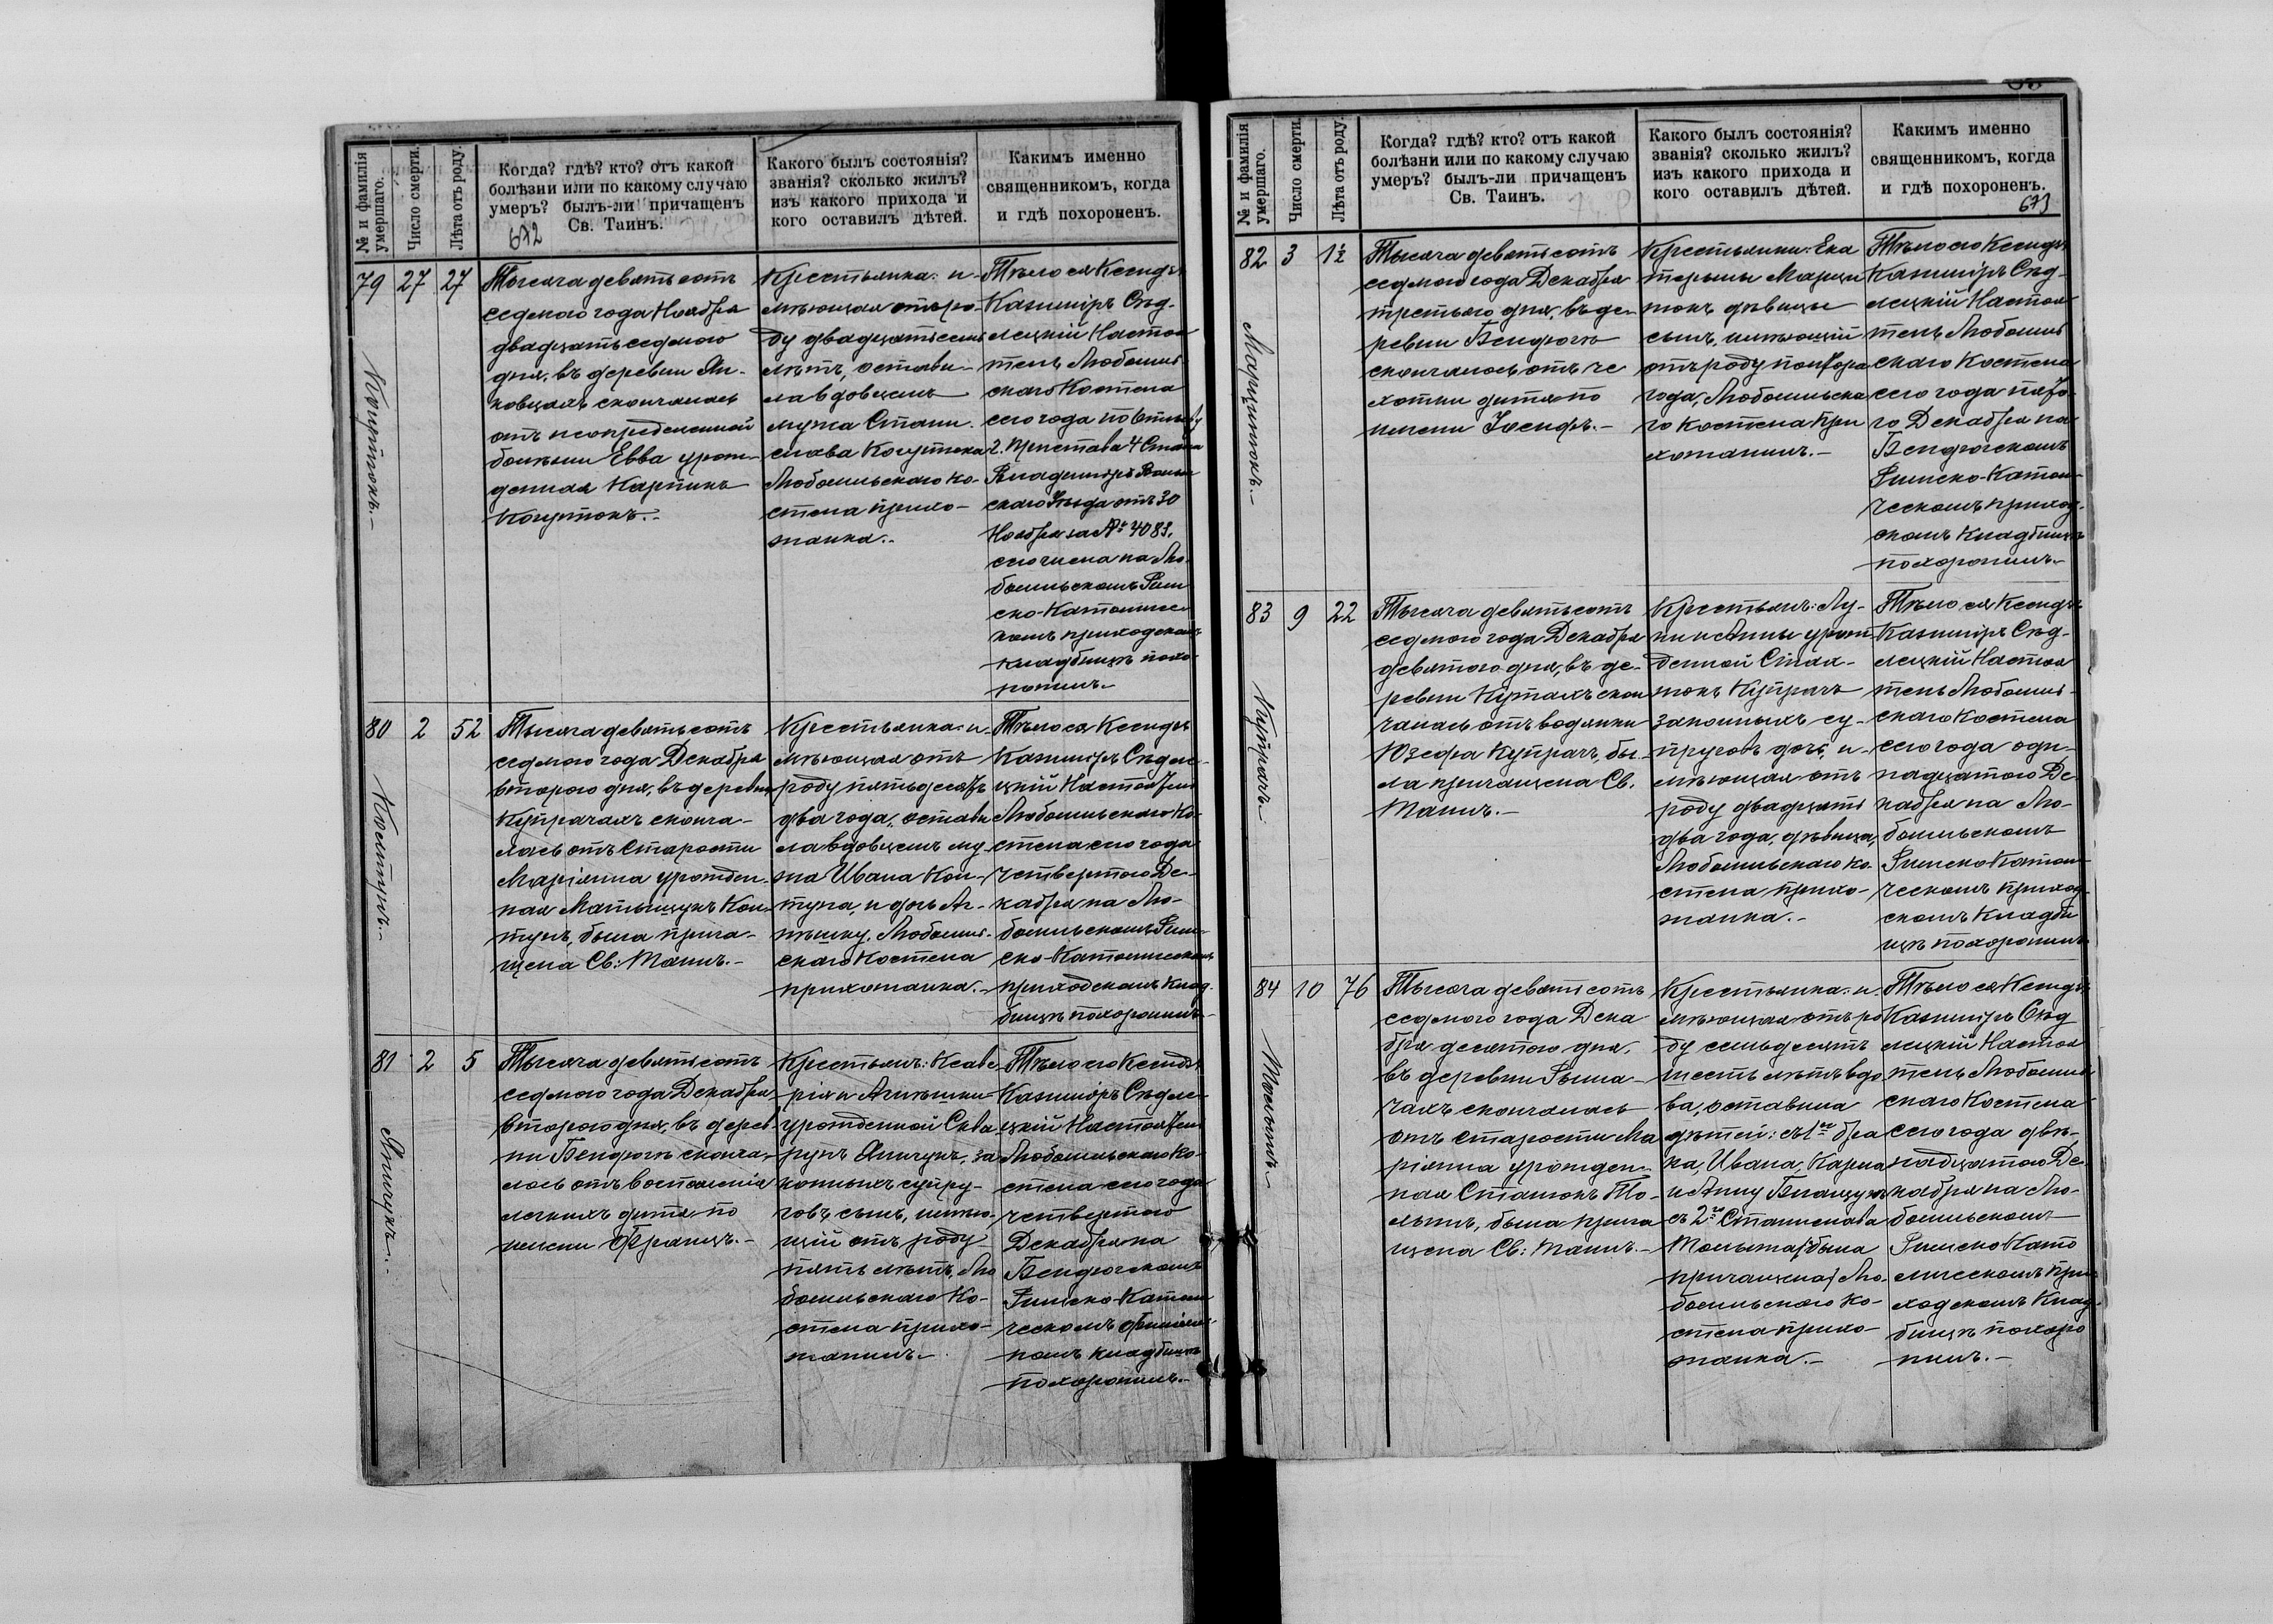 № и фамилія умершаго.
Число смерти.
Лѣта отъ роду.
Когда? гдѣ? кто? отъ какой
болѣзни или по какому случаю
умеръ? былъ-ли причащенъ
Св. Таинъ.
672
Какого былъ состоянія?
званія? сколько жилъ?
изъ какого прихода и
кого оставилъ дѣтей.
Какимъ именно
священникомъ, когда
и гдѣ похороненъ.
79
27
27
Тысяча девятьсотъ
седьмого года Ноября
двадцать седьмого
дня, въ деревни Ян-
ковцахъ скончалась
отъ неопредѣленной
болѣзни Евва урож-
денная Карпикъ
Крестьянка: и-
мѣющая отъ ро-
ду двадцать семь
лѣтъ, остави-
ла вдовцемъ
мужа Стани-
слава
Любомльскаго ко-
стела прихо-
жанка.-
Тѣло ея Ксендзъ
Казимiръ Сѣд-
лецкій Настоя
тель Любомль
скаго Костела
сего года по отнош.
г. Пристава 4 Стана
Владимiръ Волын
скаго Уѣзда отъ 30
Ноября за № 4083.
сего числа на Лю-
бомльскомъ Рим
ско-Католичес
комъ приходскомъ
кладбищѣ похо-
ронилъ.-
80
2
52
Колтунъ.-
Тысяча девятьсотъ
седьмого года Декабря
второго дня, въ деревни
Купрачахъ сконча-
лась отъ старости
Марiянна урожден-
ная Матыщукъ Кол-
тунъ, была прича-
щена Св: Таинъ.-
Крестьянка: и-
мѣющая отъ
роду пятьдесятъ
два года, остави
ла вдовцемъ му-
жа Ивана Кол-
туна, и дочь Аг-
нѣшку, Любомль-
скаго Костела
прихожанка.-
Тѣло ея Ксендзъ
Казимiръ Сѣдле-
цкій Настоятель
Любомльскаго Ко-
стела сего года
четвертого Де-
кабря на Лю-
бомльскомъ Рим-
ско-Католическомъ
приходскомъ Клад-
бищѣ похоронилъ.-
81
2
5
Тысяча девятьсотъ
седьмого года Декабря
второго дня, въ дерев-
ни Бендюгѣ сконча-
лось отъ воспаленiя
легкихъ дитя по
имени Францъ.-
Крестьянъ: Ксаве-
рiя и Агнѣшки
урожденной Сква
рукъ за
конныхъ супру-
говъ сынъ, имѣю-
щій отъ роду
пять лѣтъ, Лю
бомльскаго Ко-
стела прихо-
жанинъ.-
Тѣло его Ксендзъ
Казимiръ Сѣдле-
цкій Настоятель
Любомльскаго Ко-
стела сего года
четвертого
Декабря на
Бендюгскомъ
Римско-Католи
ческомъ филiаль-
номъ кладбищѣ
похоронилъ.-
№ и фамилія умершаго.
Число смерти.
Лѣта отъ роду.
Когда? гдѣ? кто? отъ какой
болѣзни или по какому случаю
умеръ? былъ-ли причащенъ
Св. Таинъ.
Какого былъ состоянія?
званія? сколько жилъ?
изъ какого прихода и
кого оставилъ дѣтей.
Какимъ именно
священникомъ, когда
и гдѣ похороненъ.
673
82
3
1½
Марцинюкъ.-
Тысяча девятьсотъ
седьмого года Декабря
третьяго дня, въ де-
ревни Бендюгѣ
скончалось отъ че
хотки дитя по
имени Iосифъ.-
Крестьянки: Ека
терины Марци
нюкъ дѣвицы
сынъ, имѣющій
отъ роду полтора
года, Любомльска
го Костела при
хожанинъ.-
Тѣло его Ксендзъ
Казимiръ Сѣд-
лецкій Настоя
тель Любомль
скаго Костела
сего года пято
го Декабря на
Бендюгскомъ
Римско-Католи
ческомъ приход-
скомъ Кладбищѣ
похоронилъ.-
83
9
22
Купрачъ.-
Тысяча девятьсотъ
седьмого года Декабря
девятого дня, въ де-
ревни Кутахъ скон
чалась отъ водянки
Юзефа Купрачъ, бы-
ла причащена Св.
Таинъ.-
Крестьянъ: Лу-
ки и Анны урож-
денной
Купрачъ
законныхъ су-
пруговъ дочь, и-
мѣющая отъ
роду двадцать
два года, дѣвица,
Любомльскаго ко-
стела прихо-
жанка.-
Тѣло ея Ксендзъ
Казимiръ Сѣд-
лецкій Настоя
тель Любомль-
скаго Костела
сего года оди-
надцатого Де
кабря на Лю-
бомльскомъ
Римско Католи
ческомъ приход
скомъ Кладби
щѣ похоронилъ
84
10
76
Тысяча девятьсотъ
седьмого года Дека
бря десятого дня,
въ деревни Рыма-
чахъ скончалась
отъ старости Ма
рiянна урожден-
ная Сташюкъ
была прича
щена Св: Таинъ.-
Крестьянка: и-
мѣющая отъ ро
ду семьдесятъ
шесть лѣтъ вдо
ва, оставила
дѣтей: съ 1го бра
ка, Ивана, Карла
и Анну
съ 2го Станислава
была
причащена Лю-
бомльскаго ко-
стела прихо-
жанка.-
Тѣло ея Ксендзъ
Казимiръ Сѣд
лецкій Настоя
тель Любомль
скаго Костела
сего года двѣ-
надцатого Де-
кабря на Лю-
бомльскомъ
Римско Като
лическомъ при
ходскомъ Клад-
бищѣ похоро
нилъ.-